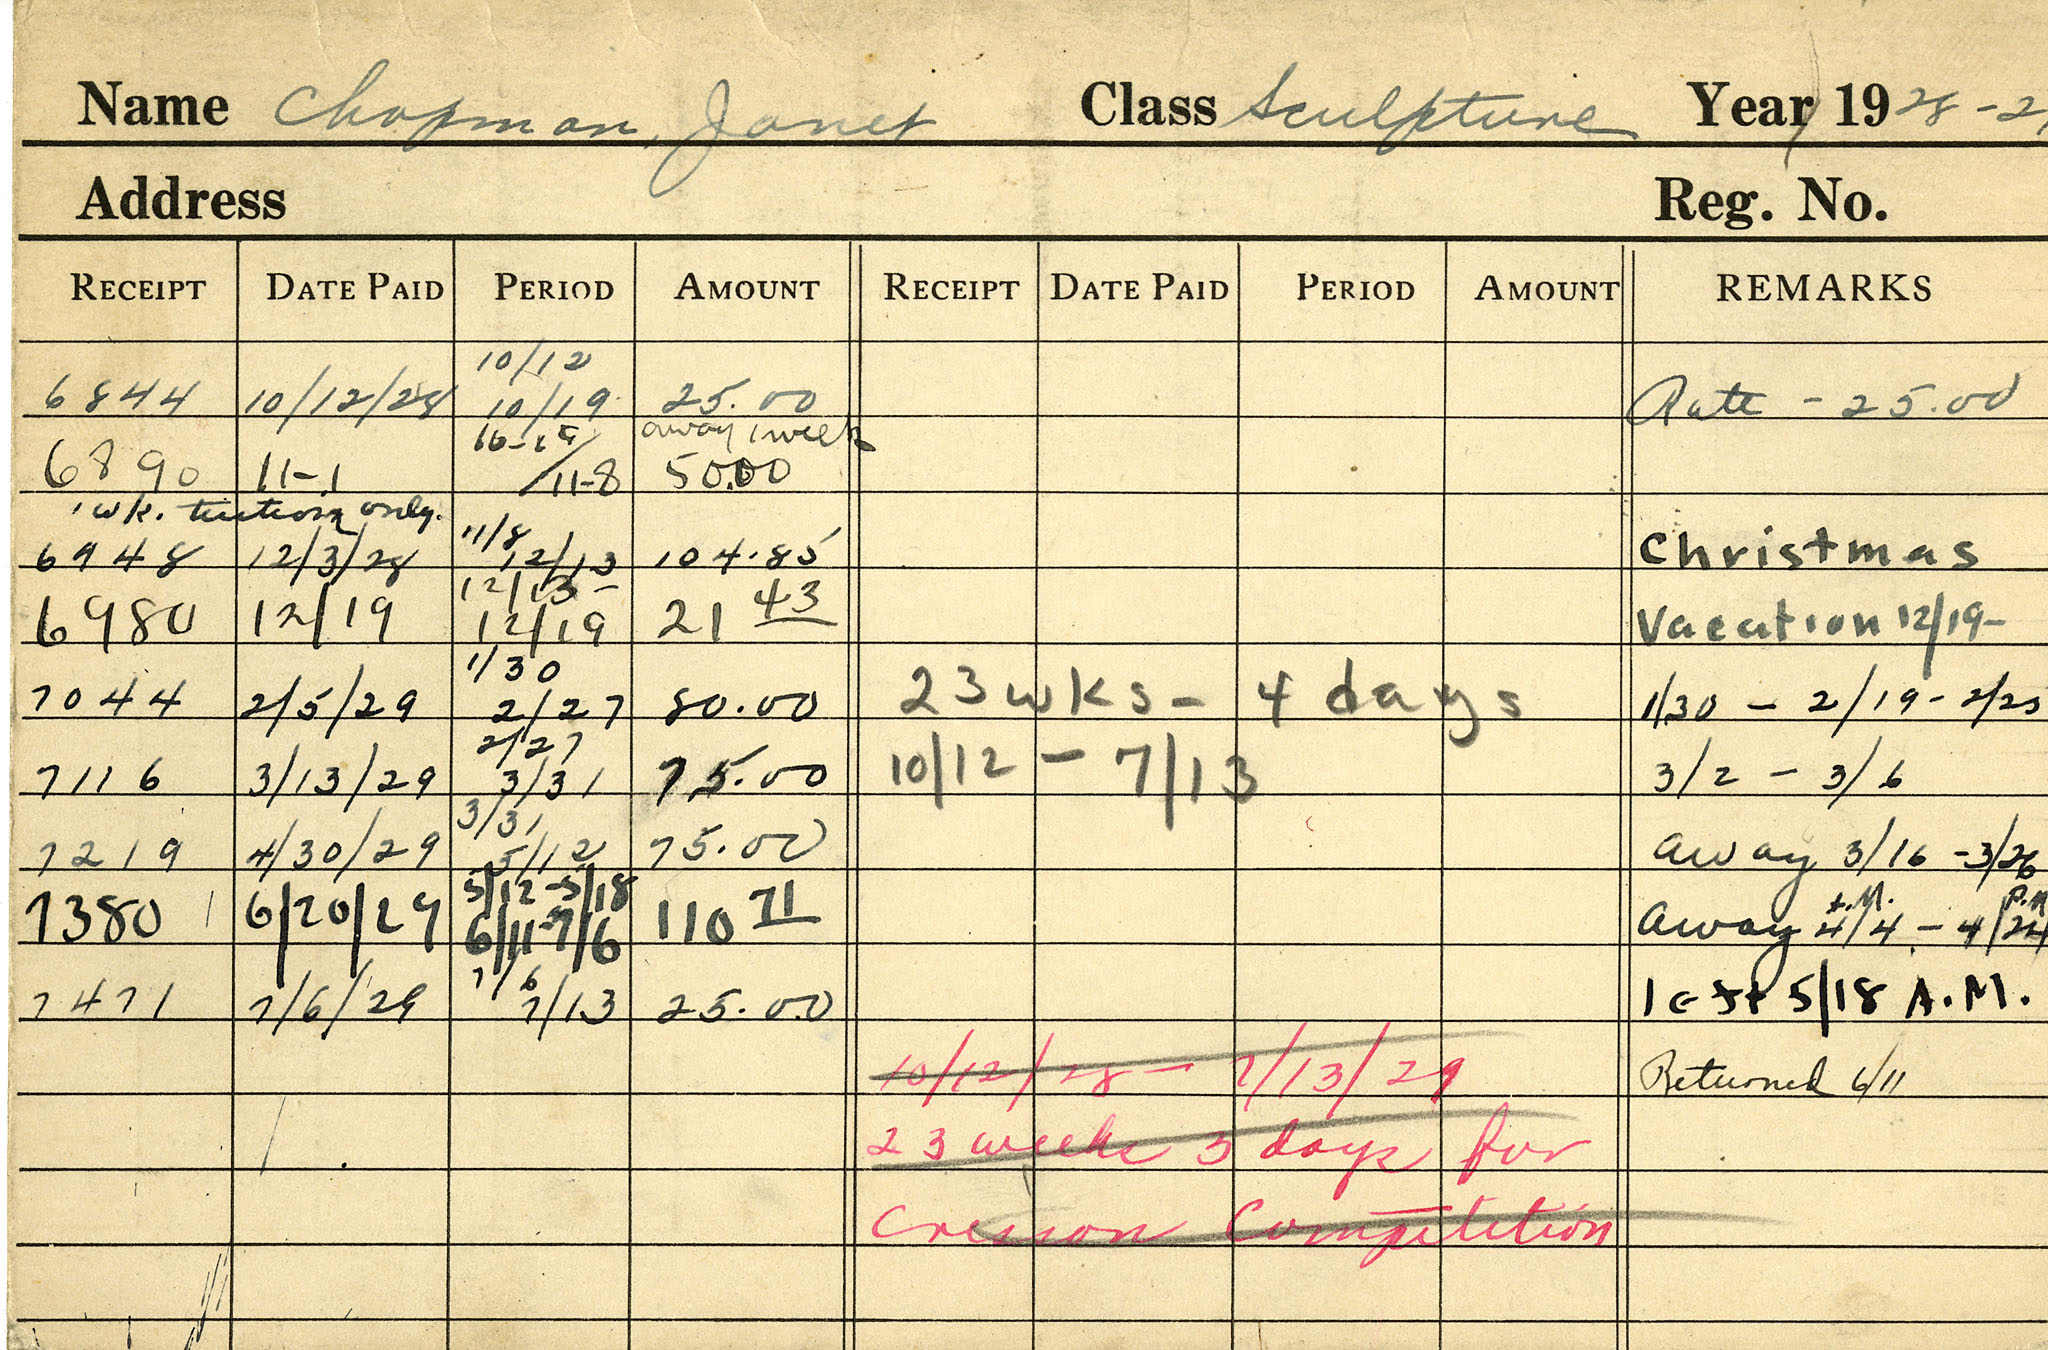 Name Chapman, Janet Class Sculpture Year 1928-29
Address Reg. No.
RECEIPT DATE PAID PERIOD AMOUNT RECEIPT DATE PAID PERIOD AMOUNT REMARKS
10/12
6844 10/12/28 10/19 25.00 Rate - 25.00
10-19/ away 1 week
6890 11-1 /11-8 50.00
1 wk. tuition only.
11/8
6948 12/3/28 12/13 104.85 Christmas
12/13-
6980 12/19 12/19 21 43 Vacation 12/19-
1/30
7044 2/5/29 2/27 80.00 23 wks - 4 days 1/30 - 2/19 - 2/25
2/27
7116 3/13/29 3/31 75.00 10/12 - 7/13 3/2 - 3/6
3/31
7219 4/30/29 5/12 75.00 away 3/16 - 3/26
5/12-5/18 A.M. P.M
7380 6/20/29 6/11-7/6 110 71 away 4/4 - 4/24
7/6
7471 7/6/29 7/13 25.00 left 5/18 A.M.
10/12/28 - 7/13/29 Returned 6/11
23 weeks 3 days for
Cresson Competition